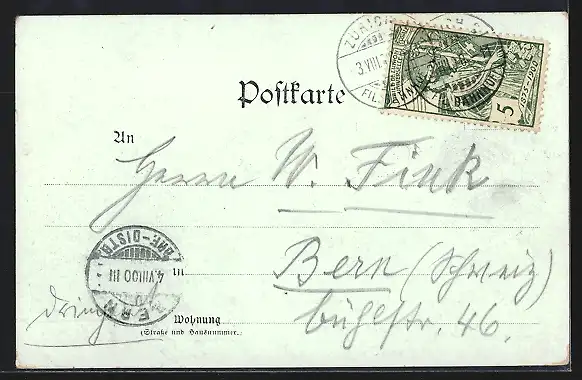 ZÜRICH
3.VIII.
FIL
1875-1900
5
Postkarte
An
Herrn W. Fink
BRF.-DISTR.
4.VIII.00 III
BERN
in Bern (Schweiz)
dring
Wohnung bühlstr. 46.
(Straße und Hausnummer.)